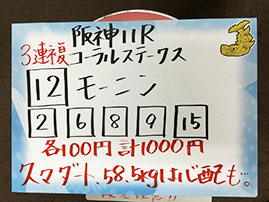 阪神11R
3連複 コーラルステークス
12 モーニン
2 6 8 9 15
各100円 計1000円
スマダート、58.5kgは心配も。